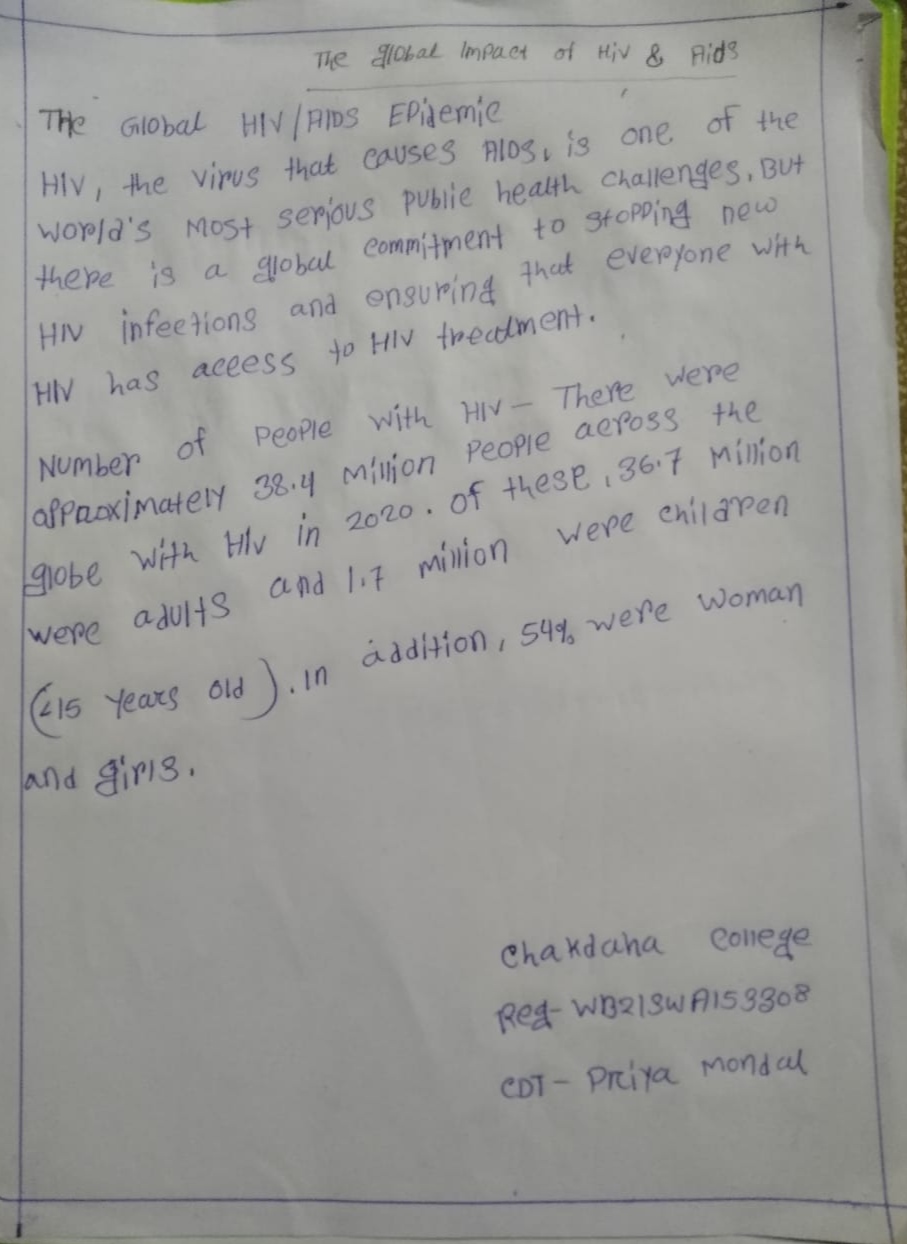 The global Impact of Hiv & Aids
The Global HIV/AIDS EPidemic
HIV, the virus that causes AIDS, is one of the
world's Most serious Public health challenges. But
there is a global commitment to stopping new
HIV infections and ensuring that everyone with
HIV has access to HIV treatment.
Number of People With HIV - There were
approximately 38.4 Million People across the
globe with HIV in 2020. of these, 36.7 Million
were adults and 1.7 million were children
(<15 years old). in addition, 54% were woman
and girls.
Chakdaha College
Reg- WB21SWA153308
CDT - Priya Mondal